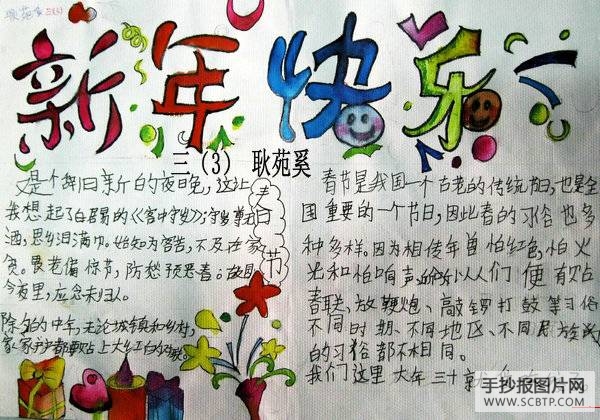 新年快乐
三(3) 耿苑奚
是个辞旧新的夜晚,这让
我想起了白居易的《客中守岁》:守岁尊无
酒,思乡泪满巾。始知为客苦,不及在家
贫。畏老偏惊节,防愁预恶春。故园
今夜里,应念未归人。
除夕的中午,无论城镇和乡村,
家家户户都要贴上大红
春节
春节是我国一个古老的传统节日,也是全
国重要的一个节日,因此春的习俗也多
种多样。因为相传年兽怕红色,怕火
光和怕响声,所以人们便有贴
春联、放鞭炮、敲锣打鼓等习俗
不同时期、不同地区、不同民族
的习俗都不相同。
我们这里大年三十
手抄报图片网
WWW.SCBTP.COM